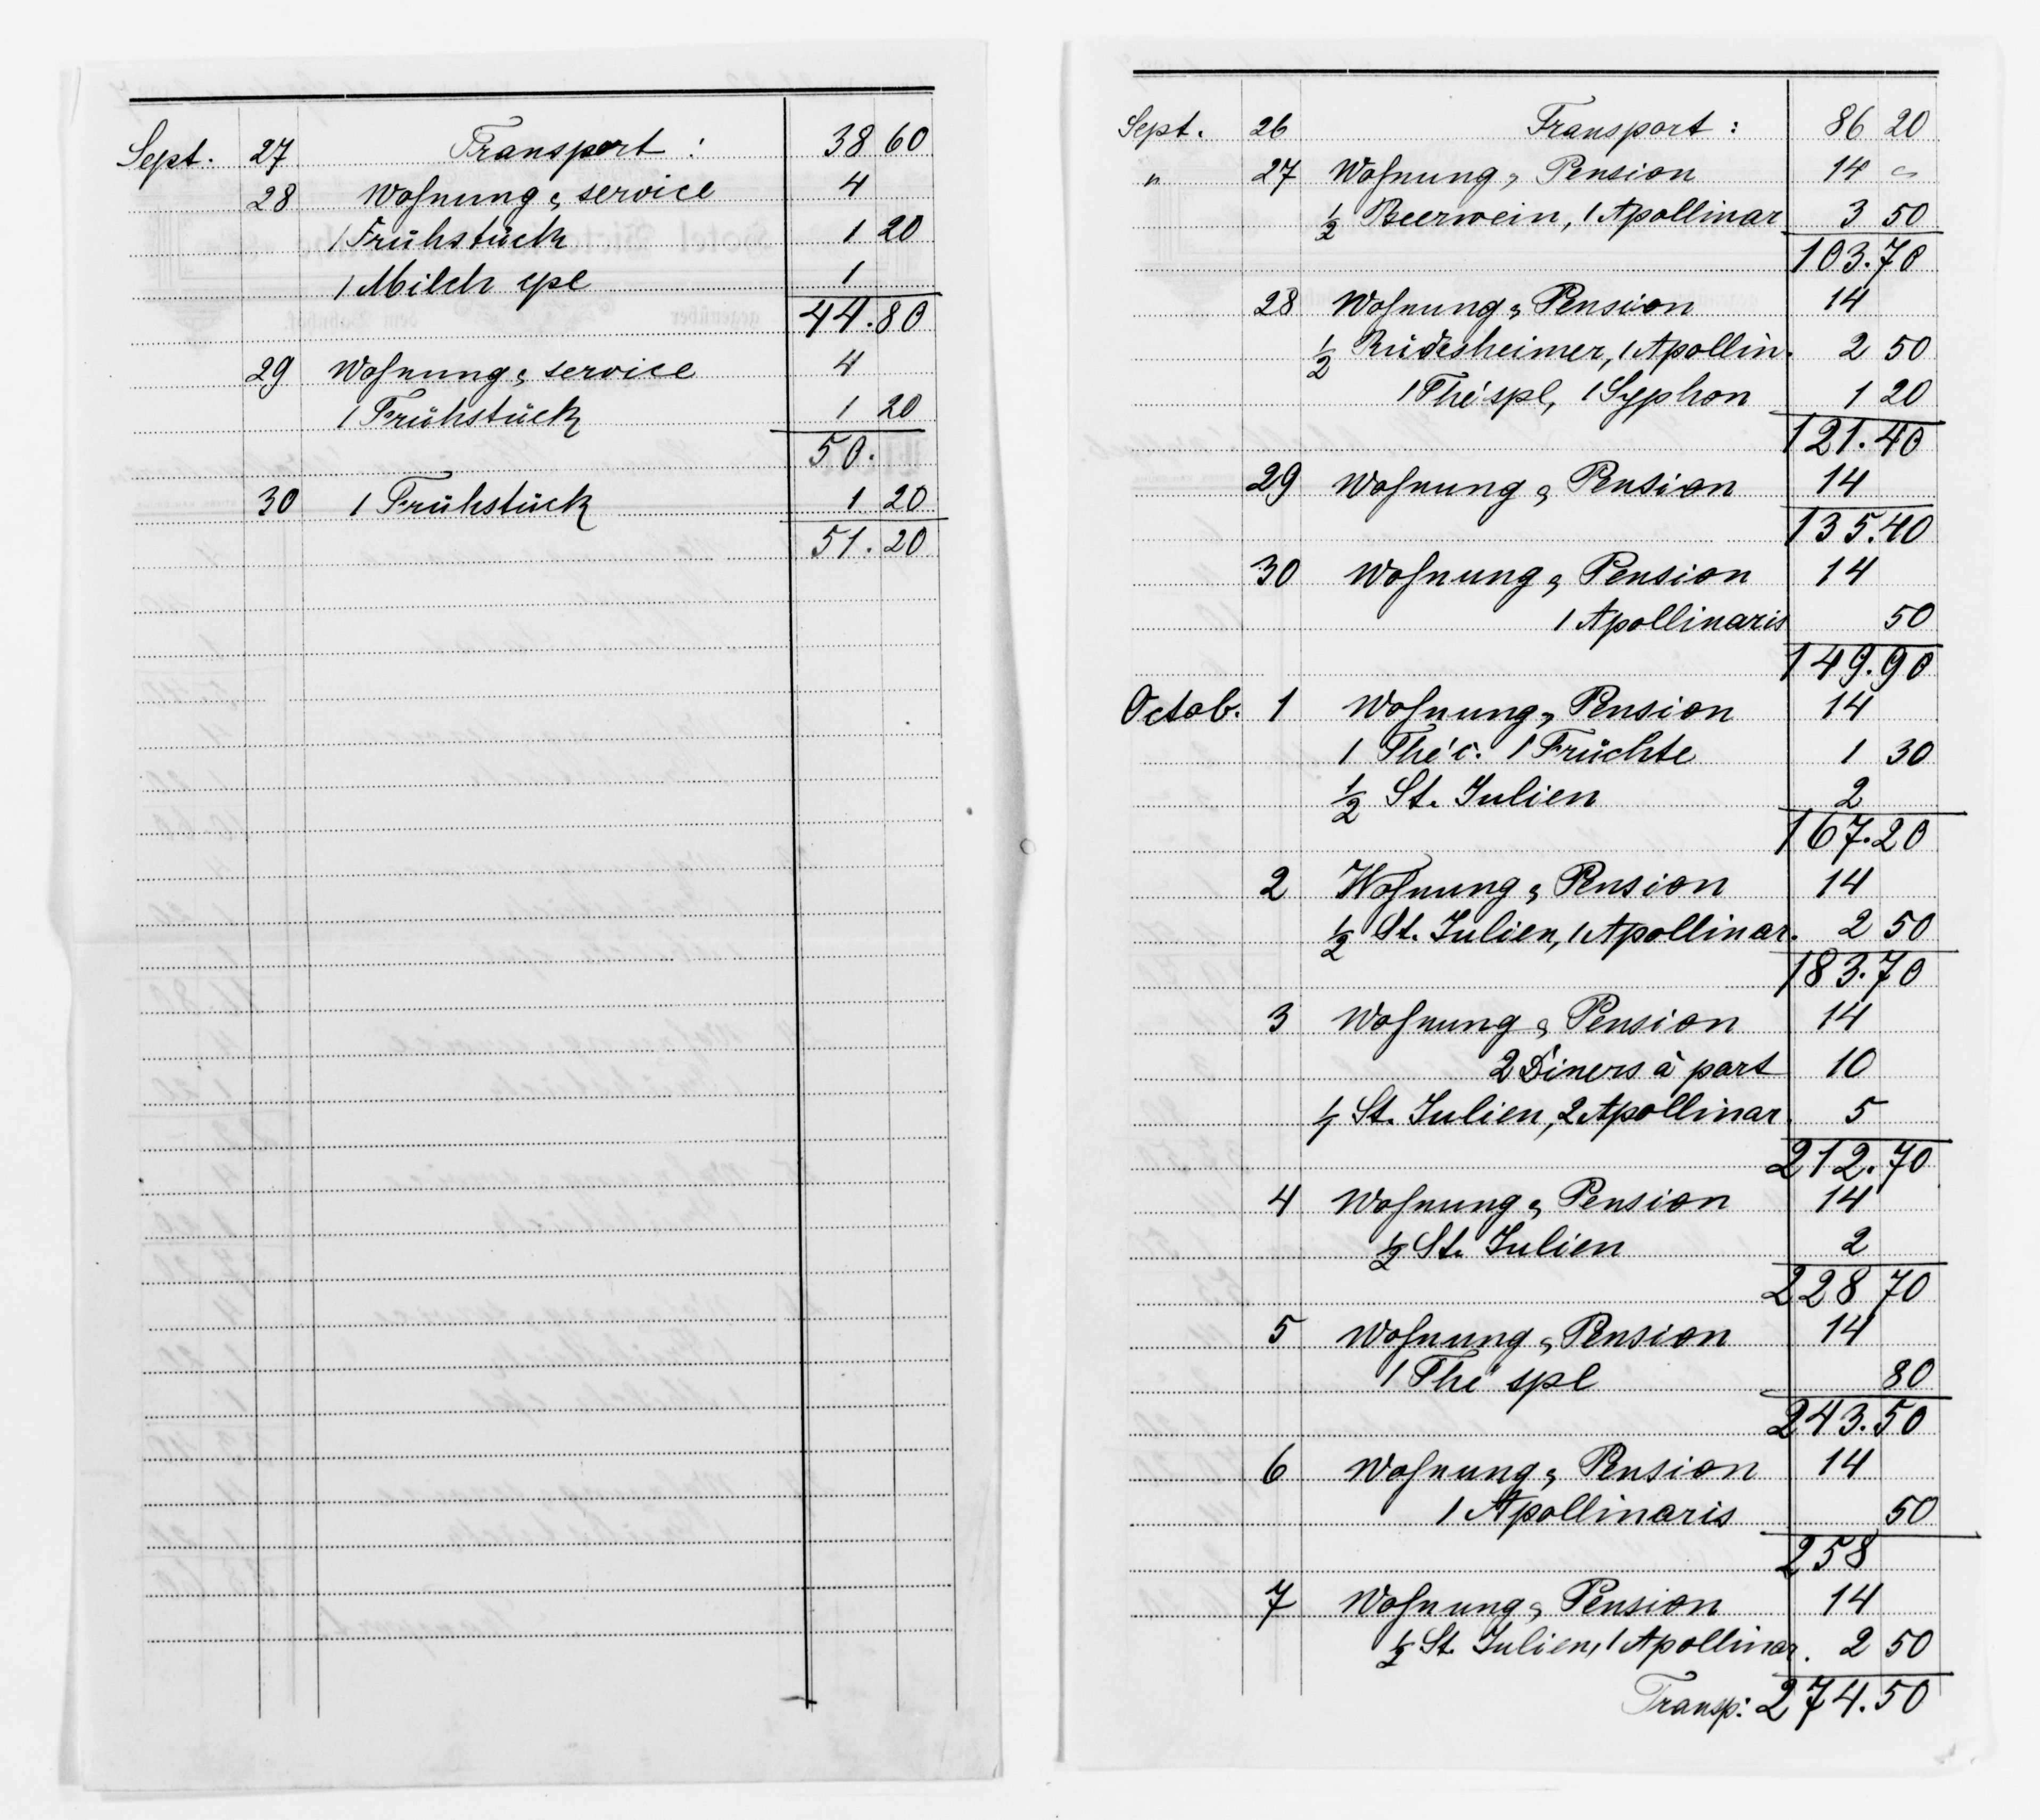 Sept. 27 Transport : 38 60
28 Wohnung & service 4
1 Frühstück 1 20
1 Milch cpl 1
44.80
29 Wohnung & service 4
1 Frühstück 1 20
50.
30 1 Frühstück 1 20
51.20
Sept. 26 Transport : 86 20
" 27 Wohnung & Pension 14 -
1/2 Beerwein, 1 Apollinar 3 50
103.70
28 Wohnung & Pension 14
1/2 Rüdesheimer, 1 Apollin. 2 50
1 Thé spl, 1 Syphon 1 20
121.40
29 Wohnung & Pension 14
135.40
30 Wohnung & Pension 14
1 Apollinaris 50
149.90
Octob. 1 Wohnung & Pension 14
1 Thé c. 1 Früchte 1 30
1/2 St. Julien 2
167.20
2 Wohnung & Pension 14
1/2 St. Julien, 1 Apollinar. 2 50
183.70
3 Wohnung & Pension 14
2 Diners à part 10
1/1 St. Julien, 2 Apollinar. 5
212.70
4 Wohnung & Pension 14
1/2 St. Julien 2
228 70
5 Wohnung & Pension 14
1 Thé spl 80
243.50
6 Wohnung & Pension 14
1 Apollinaris 50
258
7 Wohnung & Pension 14
1/2 St. Julien, 1 Apollinar. 2 50
Transp: 274.50